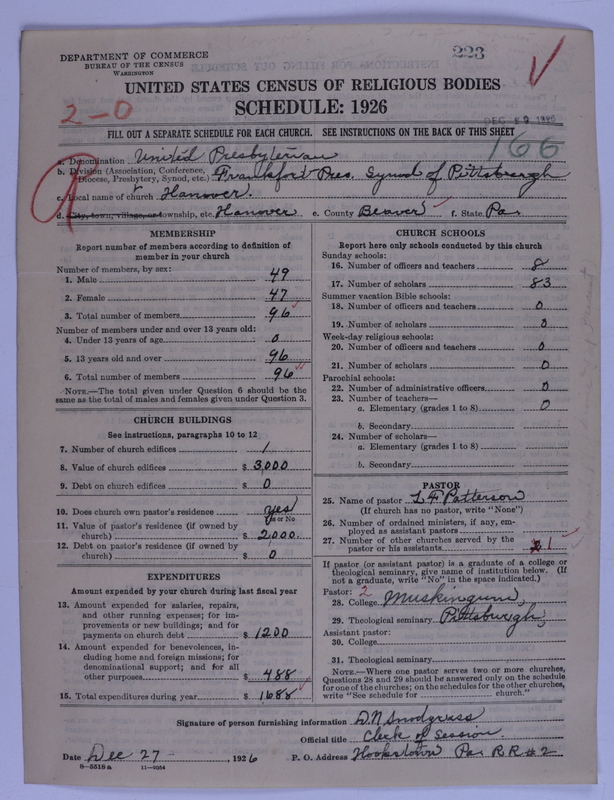 DEPARTMENT OF COMMERCE
BUREAU OF THE CENSUS
WASHINGTON
223
UNITED STATES CENSUS OF RELIGIOUS BODIES
SCHEDULE: 1926
2-0
DEC 29 1926
FILL OUT A SEPARATE SCHEDULE FOR EACH CHURCH. SEE INSTRUCTIONS ON THE BACK OF THIS SHEET
166
a. Denomination United Presbyterian
b. Division (Association, Conference, Diocese, Presbytery, Synod, etc.) Frankfort Pres. Synod of Pittsburgh
c. Local name of church Hanover.
d. City, town, village, or township, etc. Hanover e. County Beaver f. State Pa.
MEMBERSHIP
Report number of members according to definition of member in your church
Number of members, by sex:
1. Male 49
2. Female 47
3. Total number of members 96
Number of members under and over 13 years old:
4. Under 13 years of age 0
5. 13 years old and over 96
6. Total number of members 96
NOTE.—The total given under Question 6 should be the same as the total of males and females given under Question 3.
CHURCH BUILDINGS
See instructions, paragraphs 10 to 12
7. Number of church edifices 1
8. Value of church edifices $ 3,000
9. Debt on church edifices $ 0
10. Does church own pastor's residence yes
Yes or No
11. Value of pastor's residence (if owned by church) $ 2,000.
12. Debt on pastor's residence (if owned by church) $ 0
EXPENDITURES
Amount expended by your church during last fiscal year
13. Amount expended for salaries, repairs, and other running expenses; for improvements or new buildings; and for payments on church debt $ 1200
14. Amount expended for benevolences, including home and foreign missions; for denominational support; and for all other purposes $ 488
15. Total expenditures during year $ 1688
CHURCH SCHOOLS
Report here only schools conducted by this church
Sunday schools:
16. Number of officers and teachers 8
17. Number of scholars 83
Summer vacation Bible schools:
18. Number of officers and teachers 0
19. Number of scholars 0
Week-day religious schools:
20. Number of officers and teachers 0
21. Number of scholars 0
Parochial schools:
22. Number of administrative officers 0
23. Number of teachers—
a. Elementary (grades 1 to 8) 0
b. Secondary
24. Number of scholars—
a. Elementary (grades 1 to 8)
b. Secondary
PASTOR
25. Name of pastor L F Patterson
(If church has no pastor, write "None")
26. Number of ordained ministers, if any, employed as assistant pastors
27. Number of other churches served by the pastor or his assistants 1
If pastor (or assistant pastor) is a graduate of a college or theological seminary, give name of institution below. (If not a graduate, write "No" in the space indicated.)
Pastor: 2
28. College Muskingum,
29. Theological seminary Pittsburgh,
Assistant pastor:
30. College
31. Theological seminary
NOTE.—Where one pastor serves two or more churches, Questions 28 and 29 should be answered only on the schedule for one of the churches; on the schedules for the other churches, write "See schedule for ____ church."
Signature of person furnishing information D.N. Snodgrass
Official title Clerk of Session.
Date Dec 27, 1926 P. O. Address Hookstown Pa. R R #2
8-5518 a 11-9354